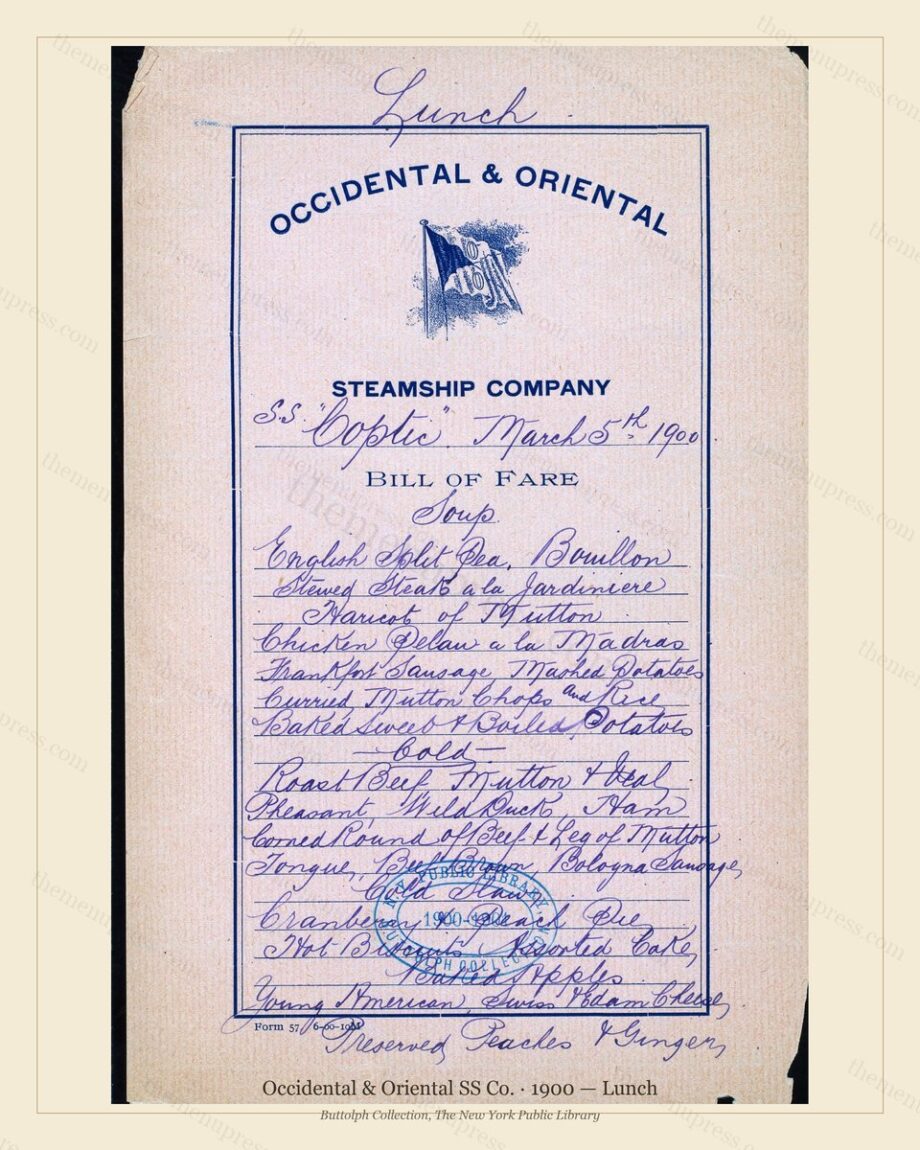 Lunch
OCCIDENTAL & ORIENTAL
STEAMSHIP COMPANY
S.S. "Coptic". March 5th 1900
BILL OF FARE
Soup
English Split Pea, Bouillon
Stewed Steak a la Jardiniere
Haricot of Mutton
Chicken Pelau a la Madras
Frankfort Sausage, Mashed Potatoes
Curried Mutton Chops and Rice
Baked Sweet & Boiled Potatoes
—Cold—
Roast Beef, Mutton & Veal,
Pheasant, Wild Duck, Ham
Corned Round of Beef & Leg of Mutton
Tongue, Beef Brawn, Bologna Sausage,
Cold Slaw
Cranberry & Peach Pie,
Hot Biscuits, Assorted Cake,
Baked Apples
Young American, Swiss & Edam Cheese,
Preserved Peaches & Ginger,
N.Y. PUBLIC LIBRARY
BUTTOLPH COLLECTION
Form 57 6-00-10M
Occidental & Oriental SS Co. · 1900 — Lunch
Buttolph Collection, The New York Public Library
themenupress.com